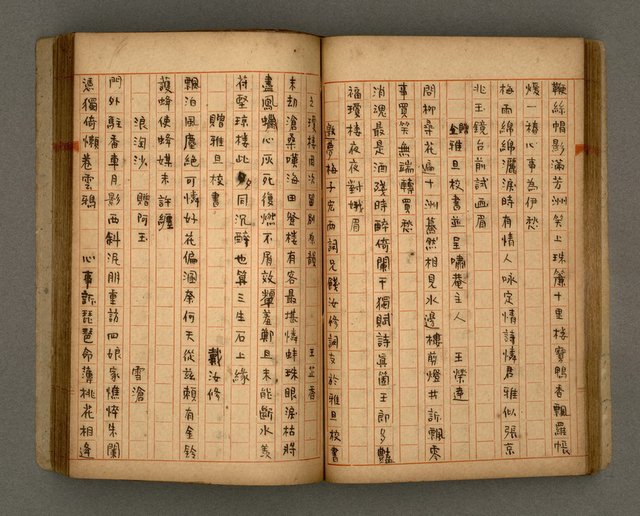 鞭絲帽影滿芳洲笑上珠簾十里樓寶鴨香飄羅帳
煖一樁心事為伊愁
梅雨綿綿灑淚時有情人咏定情詩憐君雅似張京
兆玉鏡台前試画眉
贈雅旦校書並呈嘯菴主人 王榮達
問柳桑花遍十洲驀然相見水邊樓剪燈共訴飄零
事買笑無端轉買愁
消魂最是酒殘時醉倚闌干獨賦詩真箇王郎多豔
福瓊樓夜夜對娥眉
敦夢梅子完西詞兄餞汝修調友於雅旦校書
之瓊樓因次留別原韻 王芷香
未劫滄桑嘆海田登樓有客最堪憐蚌珠眼淚枯將
盡風蠟心灰死復燃不屑效顰羞鄭旦未能斷水羨
苻堅琼樓此夕同沉醉也算三生石上緣
贈雅旦校書 戴汝修
飄泊風塵絕可憐好花偏溷奈何天從茲賴有金鈴
護蜂使蜂媒未許纏
浪淘沙 贈阿玉 雪滄
門外駐香車月影西斜泥朋重訪四娘家憔悴朱闌
憑獨倚懶卷雲鴉 心事訴琵琶命薄桃花相逢